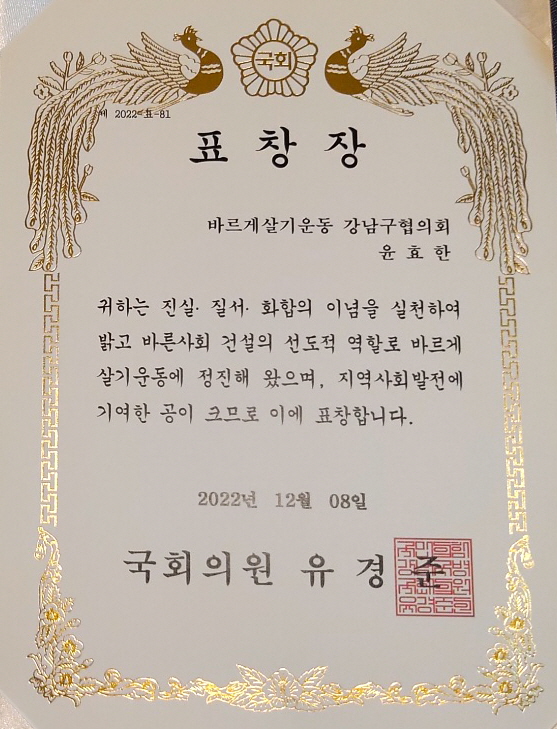 국회
제 2022-표-81
표 창 장
바르게살기운동 강남구협의회
윤 효 한
귀하는 진실· 질서· 화합의 이념을 실천하여
밝고 바른사회 건설의 선도적 역할로 바르게
살기운동에 정진해 왔으며, 지역사회발전에
기여한 공이 크므로 이에 표창합니다.
2022년 12월 08일
국회의원 유 경 준